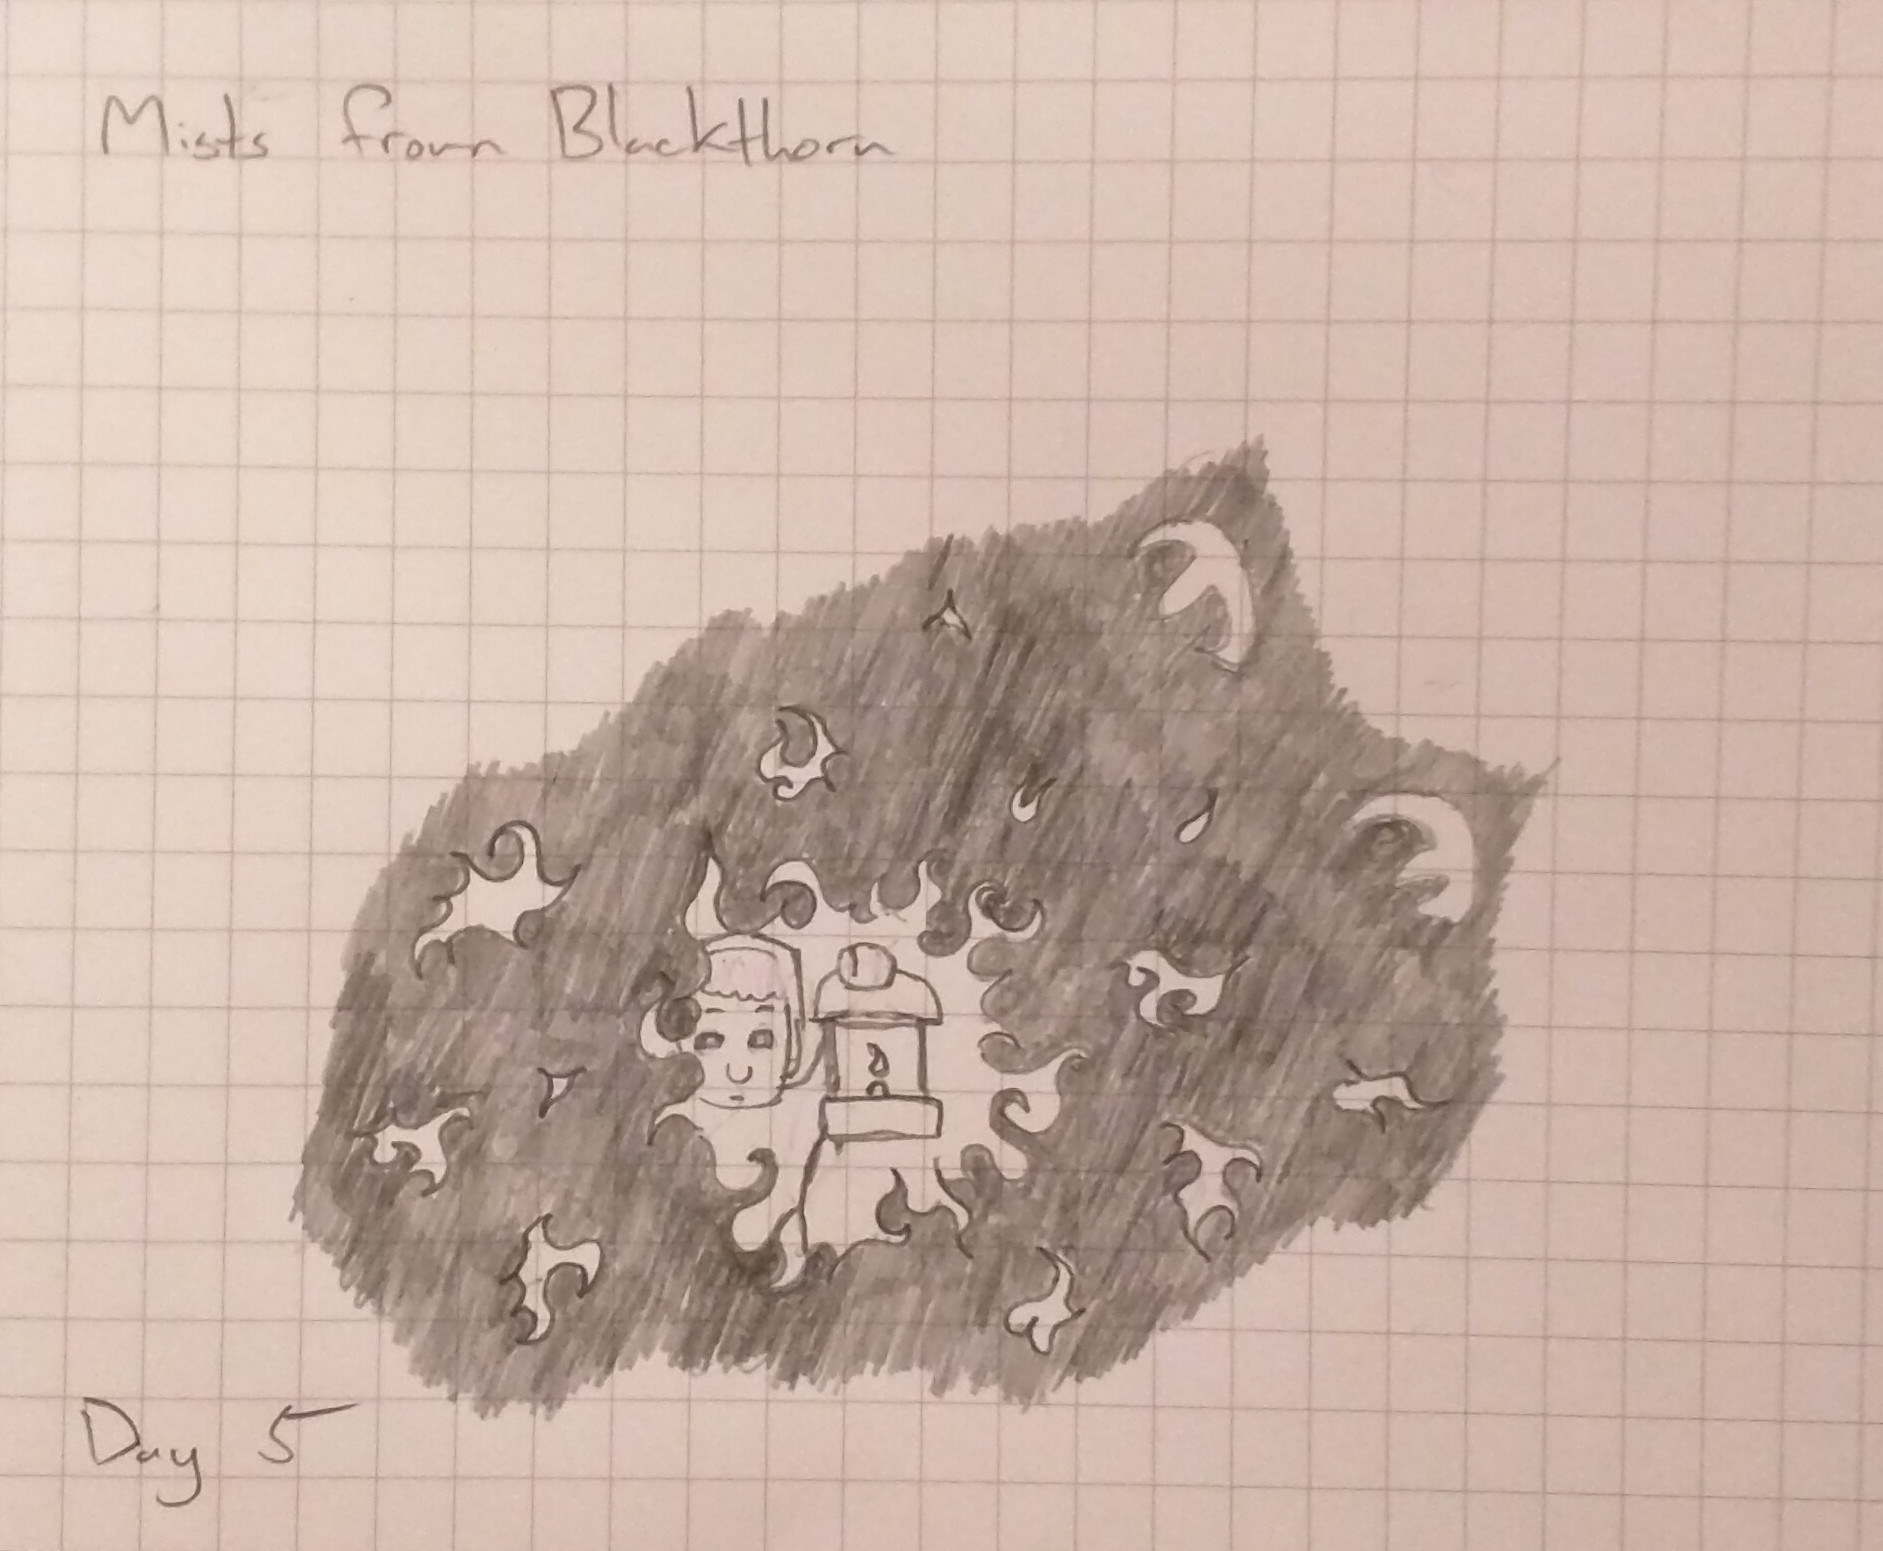 Mists from Blackthorn
Day 5